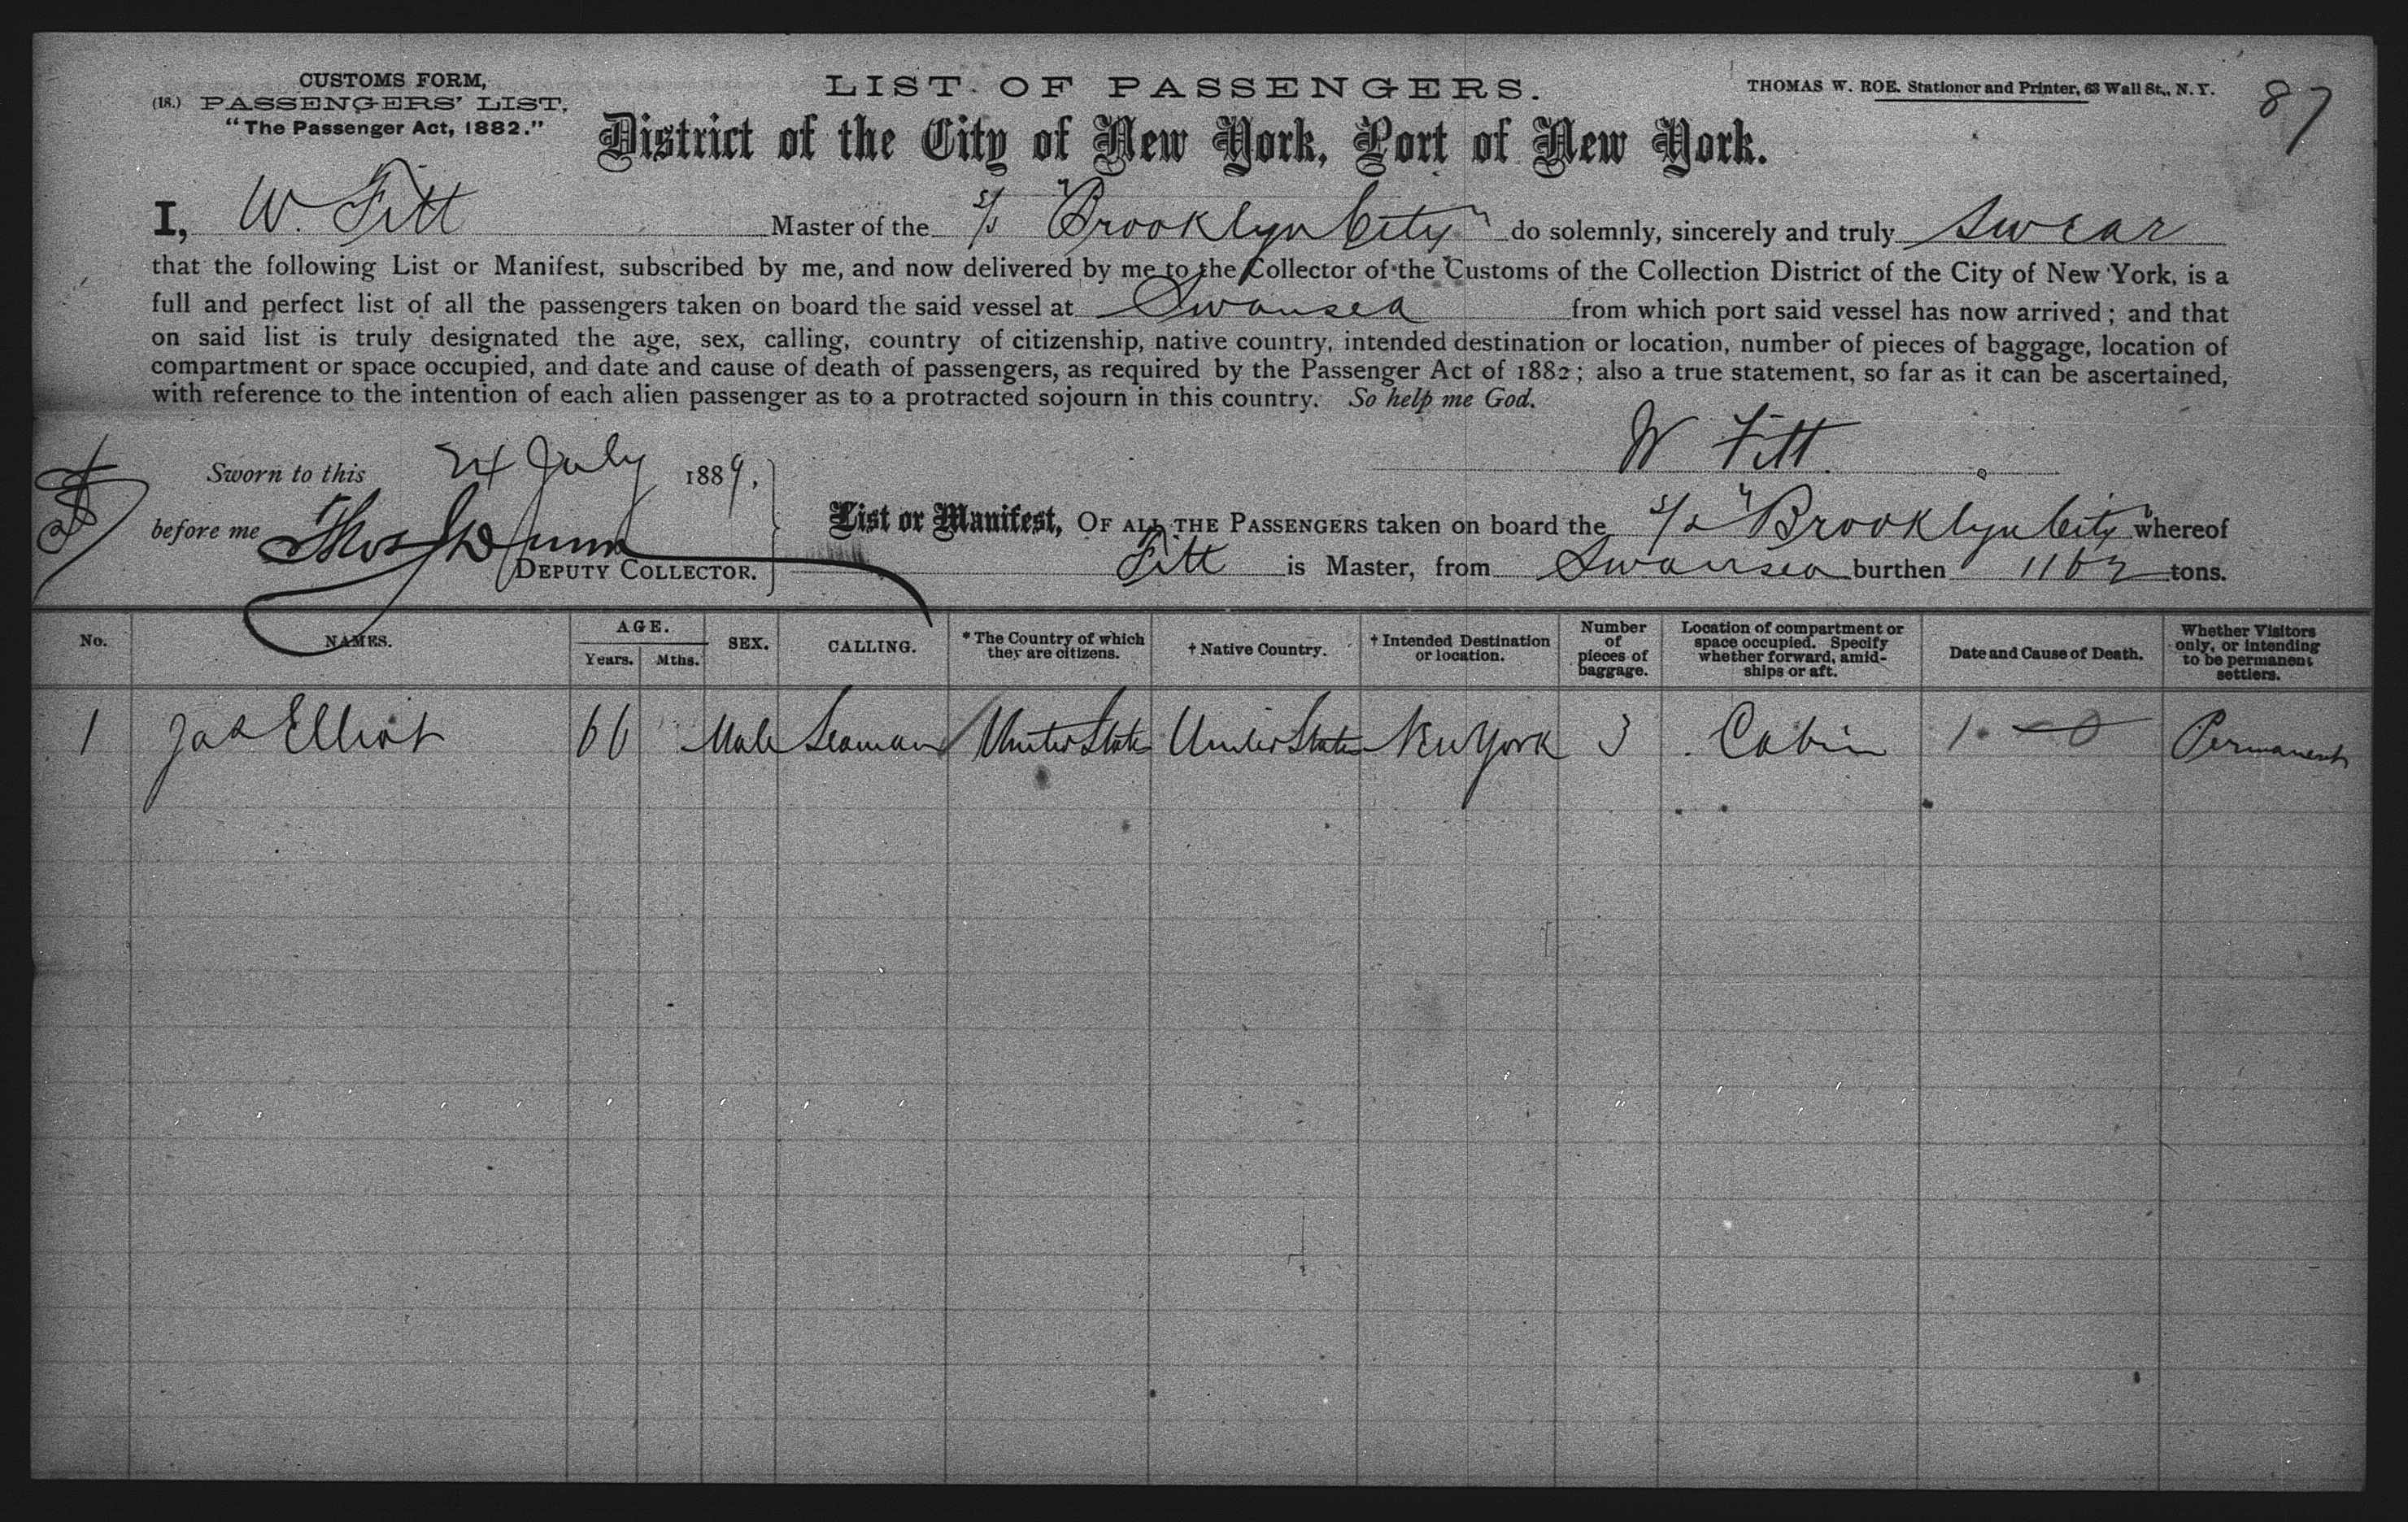 CUSTOMS FORM,
(18.) PASSENGERS' LIST.
"The Passenger Act, 1882."
LIST OF PASSENGERS.
THOMAS W. ROE. Stationer and Printer, 63 Wall St., N.Y.
87
District of the City of New York, Port of New York.
I, W. Fitt Master of the s/s "Brooklyn City" do solemnly, sincerely and truly swear
that the following List or Manifest, subscribed by me, and now delivered by me to the Collector of the Customs of the Collection District of the City of New York, is a
full and perfect list of all the passengers taken on board the said vessel at Swansea from which port said vessel has now arrived; and that
on said list is truly designated the age, sex, calling, country of citizenship, native country, intended destination or location, number of pieces of baggage, location of
compartment or space occupied, and date and cause of death of passengers, as required by the Passenger Act of 1882; also a true statement, so far as it can be ascertained,
with reference to the intention of each alien passenger as to a protracted sojourn in this country. So help me God.
W Fitt
Sworn to this 24 July 1889,
before me Thos Dunn
DEPUTY COLLECTOR.
List or Manifest, OF ALL THE PASSENGERS taken on board the s/s "Brooklyn City" whereof
Fitt is Master, from Swansea burthen tons.
No. NAMES. AGE. Years. Mths. SEX. CALLING. * The Country of which they are citizens. † Native Country. † Intended Destination or location. Number of pieces of baggage. Location of compartment or space occupied. Specify whether forward, amidships or aft. Date and Cause of Death. Whether Visitors only, or intending to be permanent settlers.
1 Jas Elliot 66 Male Seaman United States United States New York 3 Cabin 1 - 0 Permanent